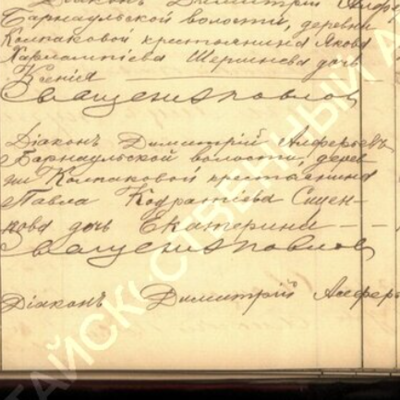 Діаконъ Димитрій Алфер
Барнаульской волости, деревни
Колпаковой крестьянина Якова
Харлампіева Шершнева дочь
Ксенія
Діаконъ Димитрій Алферьевъ
Барнаульской волости, дерев
ни Колпаковой крестьянина
Павла Кодратіева Сицен
кова дочь Екатерина
Діаконъ Димитрій Алферь